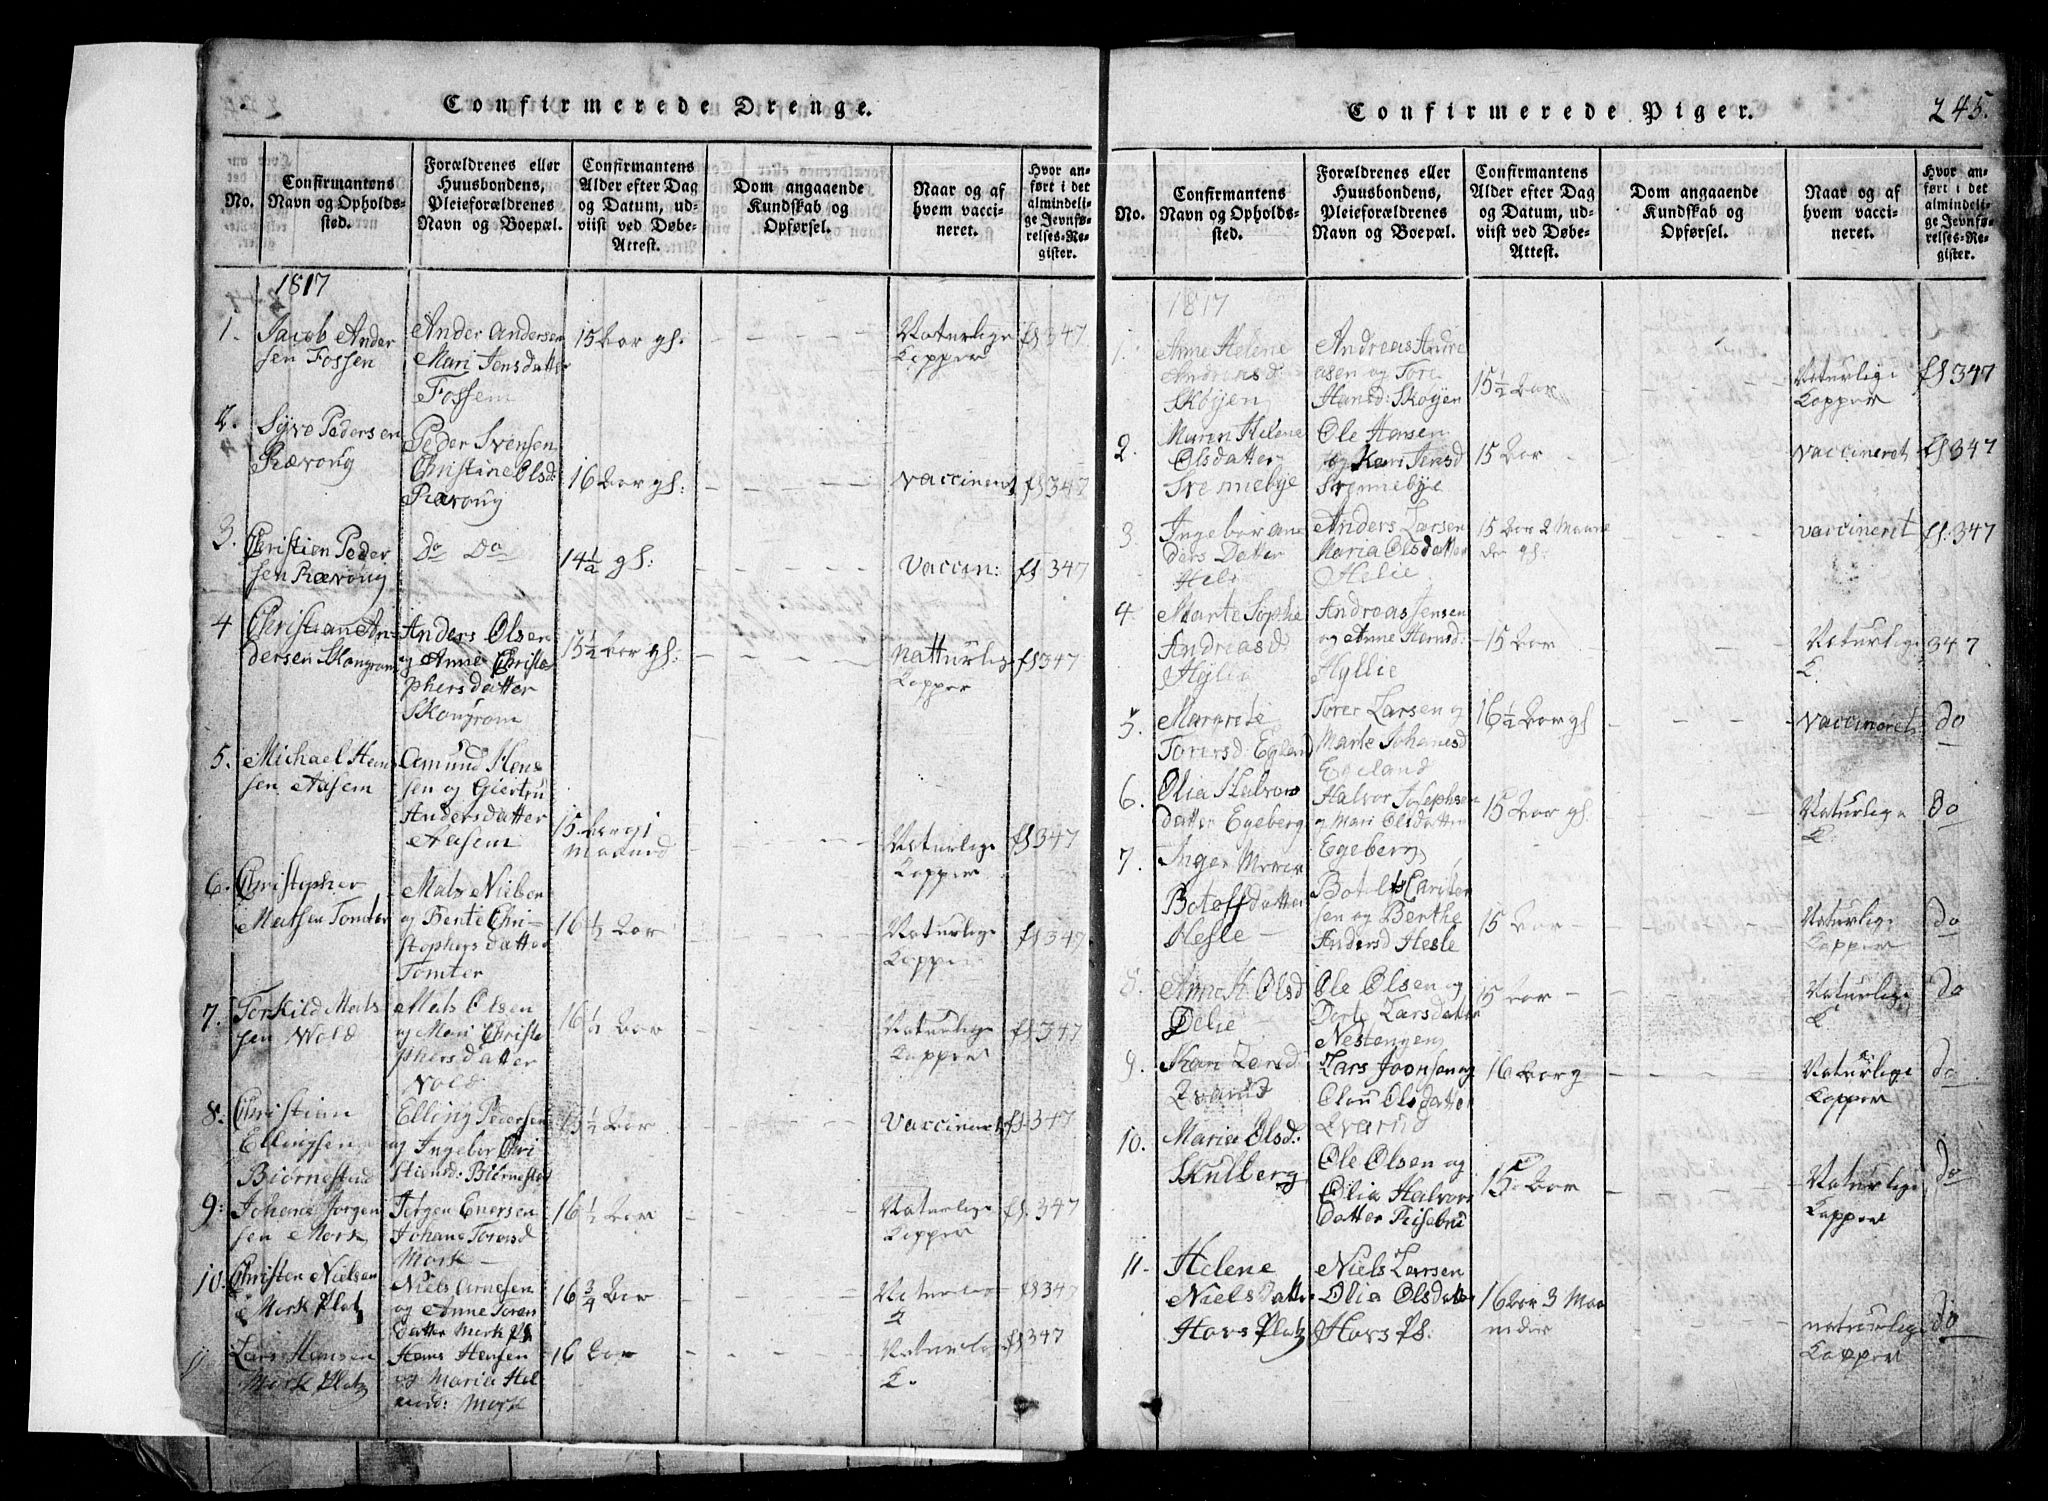 Confirmerede Drenge.
No.
Confirmantens
Navn og Opholds-
sted.
Forældrenes eller
Huusbondens,
Pleieforældrenes
Navn og Boepæl.
Confirmantens
Alder efter Dag
og Datum, ud-
viist ved Døbe-
Attest.
Dom angaaende
Kundskab og
Opførsel.
Naar og af
hvem vacci-
neret.
Hvor an-
ført i det
almindeli-
ge Jevnfø-
relses-Re-
gister.
1817
1.
Jacob Ander
sen Fossen
Ander Andersen
Mari Jensdatter
Fossen
15 Aar gl:
Naturlige
Kopper
fl 347
2.
Syve Pedersen
Rævoug
Peder Svensen
Christine Olsd:
Rævoug
16 Aar gl:
vaccineret
fl 347
3.
Christien Peder
sen Rævoug
do do
14½ gl:
vaccin:
fl 347
4
Christian An-
dersen Skongrom
Anders Olsen
og Anne Christo
phersdatter
Skougrom
15½ Aar gl:
Natturlige
Kopper
fl 347
5.
Michael Han
sen Aasem
Amund Hans
sen og Giertru
Andersdatter
Aasem
15 Aar gl
maaned
Naturlige
Kopper
fl 347
6.
Christopher
Matsen Tomter
Mats Nielsen
og Bente Chri-
stophersdatter
Tomter
16½ Aar
Naturlige
Kopper
fl 347
7.
Torkild Mats
sen Wold
Mats Olsen
og Mari Christo
phersdatter
Wold
16½ Aar
Naturlige
Kopper
fl 347
8.
Christian
Ellingsen
Biørnestad
Elling Pedersen
og Ingebor Chri
stiensd: Biørnestad
15½ Aar
Vaccineret
fl 347
9:
Johane Jørgen
sen Mork
Jørgen Enersen
Johane Toresd
Mork
16½ Aar
Naturlige
Kopper
fl. 347
10.
Christen Nielsen
Mork Platz
Niels Arnesen
og Anne Toren
datter Mork Pl.
16¾ Aar
Naturlige
K
fl 347
11
Lars Hansen
Mork Platz
Hans Hansen
og Maria Hel
Mork
16 Aar
Naturlige
K.
fl 347
Confirmerede Piger.
245.
No.
Confirmantens
Navn og Opholds-
sted.
Forældrenes eller
Huusbondens,
Pleieforældrenes
Navn og Boepæl.
Confirmantens
Alder efter Dag
og Datum, ud-
viist ved Døbe-
Attest.
Dom angaaende
Kundskab og
Opførsel.
Naar og af
hvem vacci-
neret.
Hvor an-
ført i det
almindeli-
ge Jevnfø-
relses-Re-
gister.
1817
1.
Anne Helene
Andreasd.
Skøyen
Andreas Andre
asen og Tore
Hansd: Skøyen
15½ Aar
Naturlige
Kopper
fl 347
2.
Maren Helene
Olsdatter
Svennebye
Ole Hansen
og Kari Jensd
Svennebye
15 Aar
vaccineret
fl. 347
3.
Ingebor An
ders Datter
Helie
Anders Larsen
Maria Olsdatter
Helie
15 Aar 2 Maane
der gl:
vaccineret
fl. 347
4
Marte Sophie
Andreasd
Hyllie
Andreas Jensen
og Anne Hansd.
Hyllie
15 Aar
Naturlige
K.
347
5.
Margrete
Toresd: Egland
Torer Larsen og
Marte Johanesd
Egeland
16½ Aar gl
vaccineret
do
6.
Olia Halvors
datter Egeberg
Halvor Josephsen
og Mari Olsdatter
Egeberg
15 Aar gl.
Naturlige
K.
do
7.
Inger Maria
Botolfsdatter
Hesle
Botolf Christen
sen og Berthe
Andersd Hesle
15 Aar
Naturlige
Kopper
do
8.
Anne K Olsd
Delie
Ole Olsen og
Dorte Larsdatter
Nestengen
15 Aar
Naturlige
K
do
9.
Kari Larsd
Kvarud
Lars Joonsen og
Olou Olsdatter
Kvarud
16 Aar g
Naturlige
Kopper
do
10.
Maria Olsd:
Skulberg
Ole Olsen og
Olia Halvors
datter Risebrü
15 Aar
Naturlige
Kopper
do
11.
Helene
Nielsdatter
Hovs Platz
Niels Larsen
Olia Olsdatter
Hovs Pl.
16 Aar 3 Maa
neder
naturlige
Kopper
do